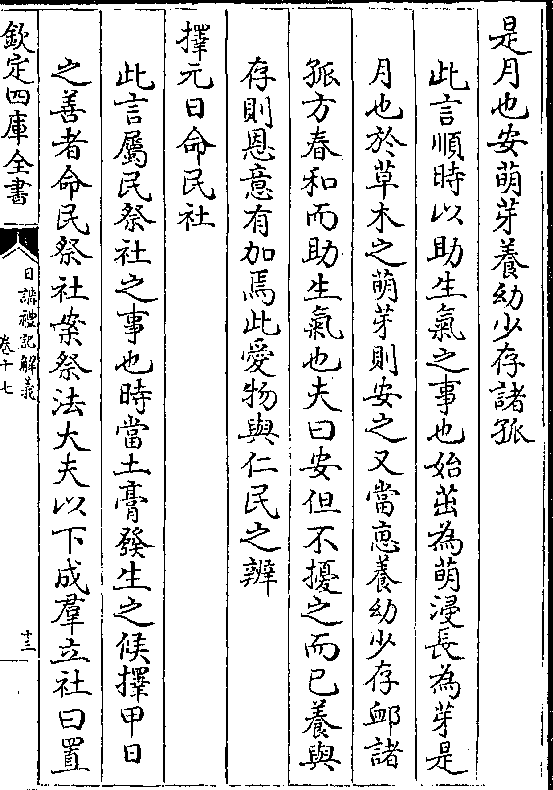 是月也安萌芽養幼少存諸孤
此言順時以助生氣之事也始茁為萌浸長為芽是
月也於草木之萌芽則安之又當惠養幼少存䘏諸
孤方春和而助生氣也夫曰安但不擾之而已養與
存則恩意有加焉此愛物與仁民之辨
擇元日命民社
此言屬民祭社之事也時當土膏發生之候擇甲日
之善者命民祭社案祭法大夫以下成羣立社曰置
欽定四庫全書
日講禮記解義
卷十七
十三